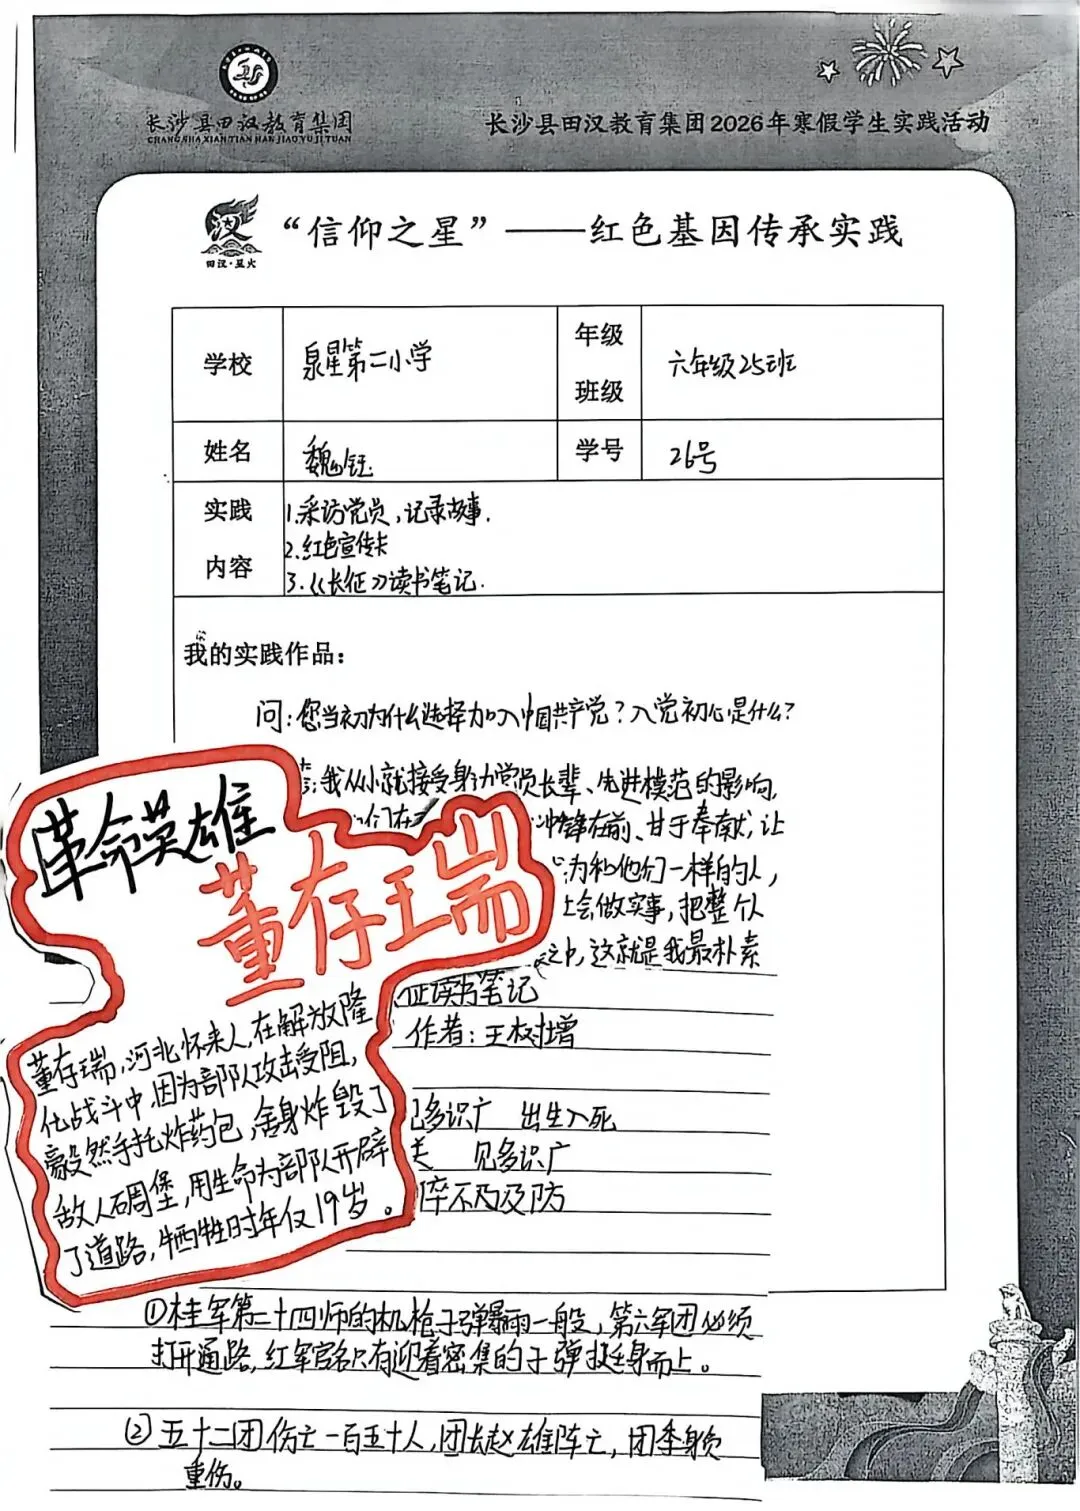 长沙县田汉教育集团
CHANGSHAXIANTIANHANJIAOYUJITUAN
长沙县田汉教育集团2026年寒假学生实践活动
汉
田汉·星火
“信仰之星”——红色基因传承实践
学校
泉星第二小学
年级
班级
六年级25班
姓名
魏钰
学号
26号
实践
内容
1.采访党员,记录故事.
2.红色宣传卡
3.《长征》读书笔记.
我的实践作品:
问:您当初为什么选择加入中国共产党?入党初心是什么?
答:我从小就接受身边党员长辈、先进模范的影响,
们在
冲锋在前、甘于奉献,让
为和他们一样的人,
会做实事,把整个人
之中,这就是我最朴素
革命英雄
董存瑞
董存瑞,河北怀来人,在解放隆
化战斗中,因为部队攻击受阻,
毅然手托炸药包,舍身炸毁了
敌人碉堡,用生命为部队开辟
了道路,牺牲时年仅19岁。
征读书笔记
作者:王树增
见多识广 出生入死
见多识广
猝不及及防
①桂军第二十四师的机枪子弹暴雨一般,第六军团必须
打开通路,红军官兵只有迎着密集的子弹挺身而上。
②五十二团伤亡一百五十人,团长赵雄阵亡,团李身负
重伤。